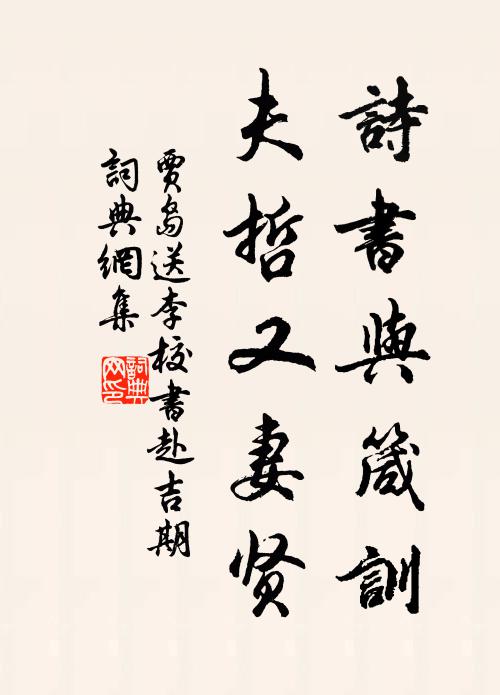 詩書與箴訓
夫哲又妻贤
贾島送李校書赴吉期
詞典網集
詞典網印